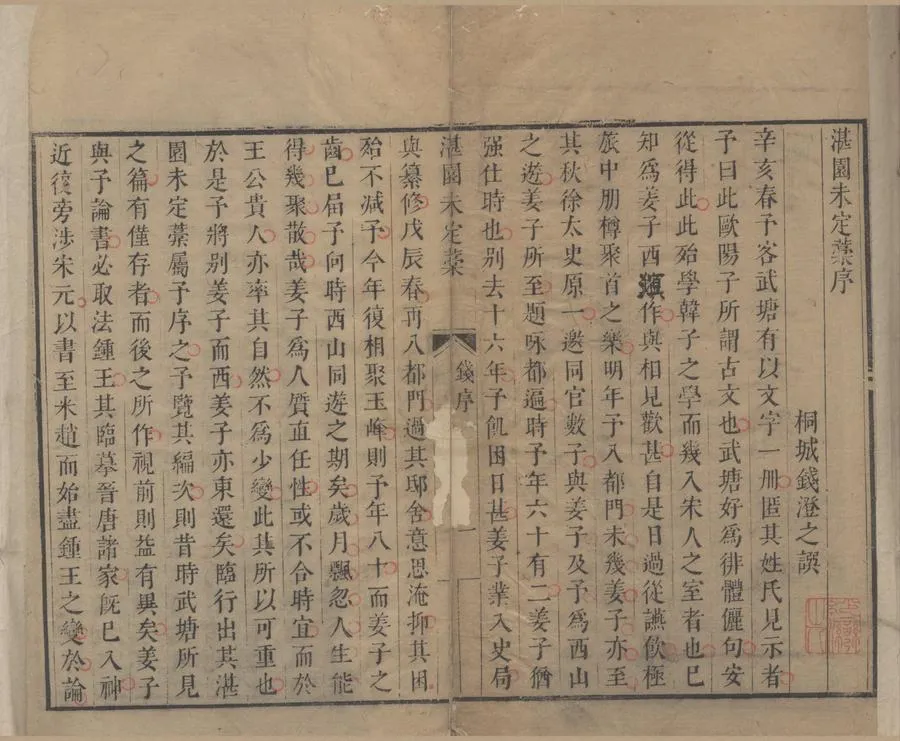 湛園未定藁序
桐城錢澄之譔
辛亥春予客武塘有以文字一册匿其姓氏見示者
予曰此歐陽子所謂古文也武塘好爲徘體儷句安
從得此此殆學韓子之學而幾入宋人之室者也已
知爲姜子西溟作與相見歡甚自是日過從讌飲極
旅中朋樽聚首之樂明年予入都門未幾姜子亦至
其秋徐太史原一邀同官數子與姜子及予爲西山
之遊姜子所至題咏都遍時予年六十有二姜子猶
强仕時也别去十六年予飢困日甚姜子業入史局
湛園未定藁
錢序
一
與纂修戊辰春再入都門過其邸舍意思淹抑其困
殆不減予今年復相聚玉峰則予年八十而姜子之
齒已屆予向時西山同遊之期矣歲月飄忽人生能
得幾聚散哉姜子爲人質直任性或不合時宜而於
王公貴人亦率其自然不爲少變此其所以可重也
於是予將别姜子而西姜子亦東還矣臨行出其湛
園未定藁屬予序之予覽其編次則昔時武塘所見
之篇有僅存者而後之所作視前則益有異矣姜子
與予論書必取法鍾王其臨摹晉唐諸家旣已入神
近復旁涉宋元以書至米趙而始盡鍾王之變於論